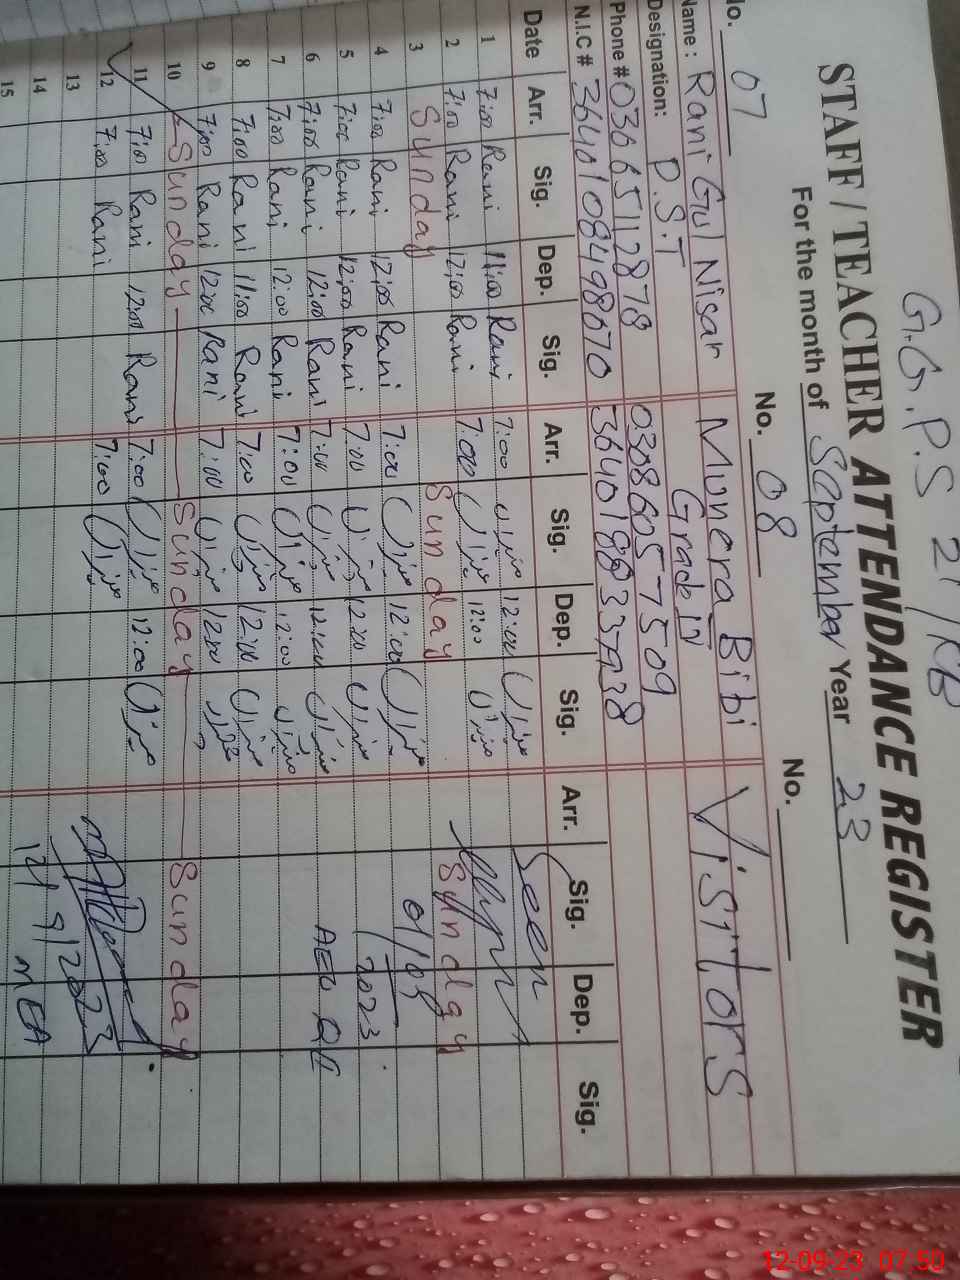 G.G.P.S 21/KB
STAFF / TEACHER ATTENDANCE REGISTER
For the month of September Year 23
No. 07 No. 08 No.
Name : Rani Gul Nisar Munera Bibi Visitors
Designation: P.S.T Grade IV
Phone # 03665112878 03086057509
N.I.C # 3640108498670
Date Arr. Sig. Dep. Sig. Arr. Sig. Dep. Sig. Arr. Sig. Dep. Sig.
1 7:00 Rani 11:00 Rani 7:00 منیراں 12:00 منیراں Seen
2 7:00 Rani 12:00 Rani 7:00 منیراں 12:00 منیراں
3 Sunday Sunday Sunday
4 7:00 Rani 12:00 Rani 7:00 منیراں 12:00 منیراں
5 7:00 Rani 12:00 Rani 7:00 منیراں 12:00 منیراں 2023
6 7:00 Rani 12:00 Rani 7:00 منیراں 12:00 منیراں AEO
7 7:00 Rani 12:00 Rani 7:00 منیراں 12:00 منیراں
8 7:00 Rani 11:00 Rani 7:00 منیراں 12:00 منیراں
9 7:00 Rani 12:00 Rani 7:00 منیراں 12:00 منیراں
10 Sunday Sunday Sunday
11 7:00 Rani 12:00 Rani 7:00 منیراں 12:00 منیراں
12 7:00 Rani 7:00 منیراں
13
14 12/9/2023
15 MEA
12-09-23 07:50